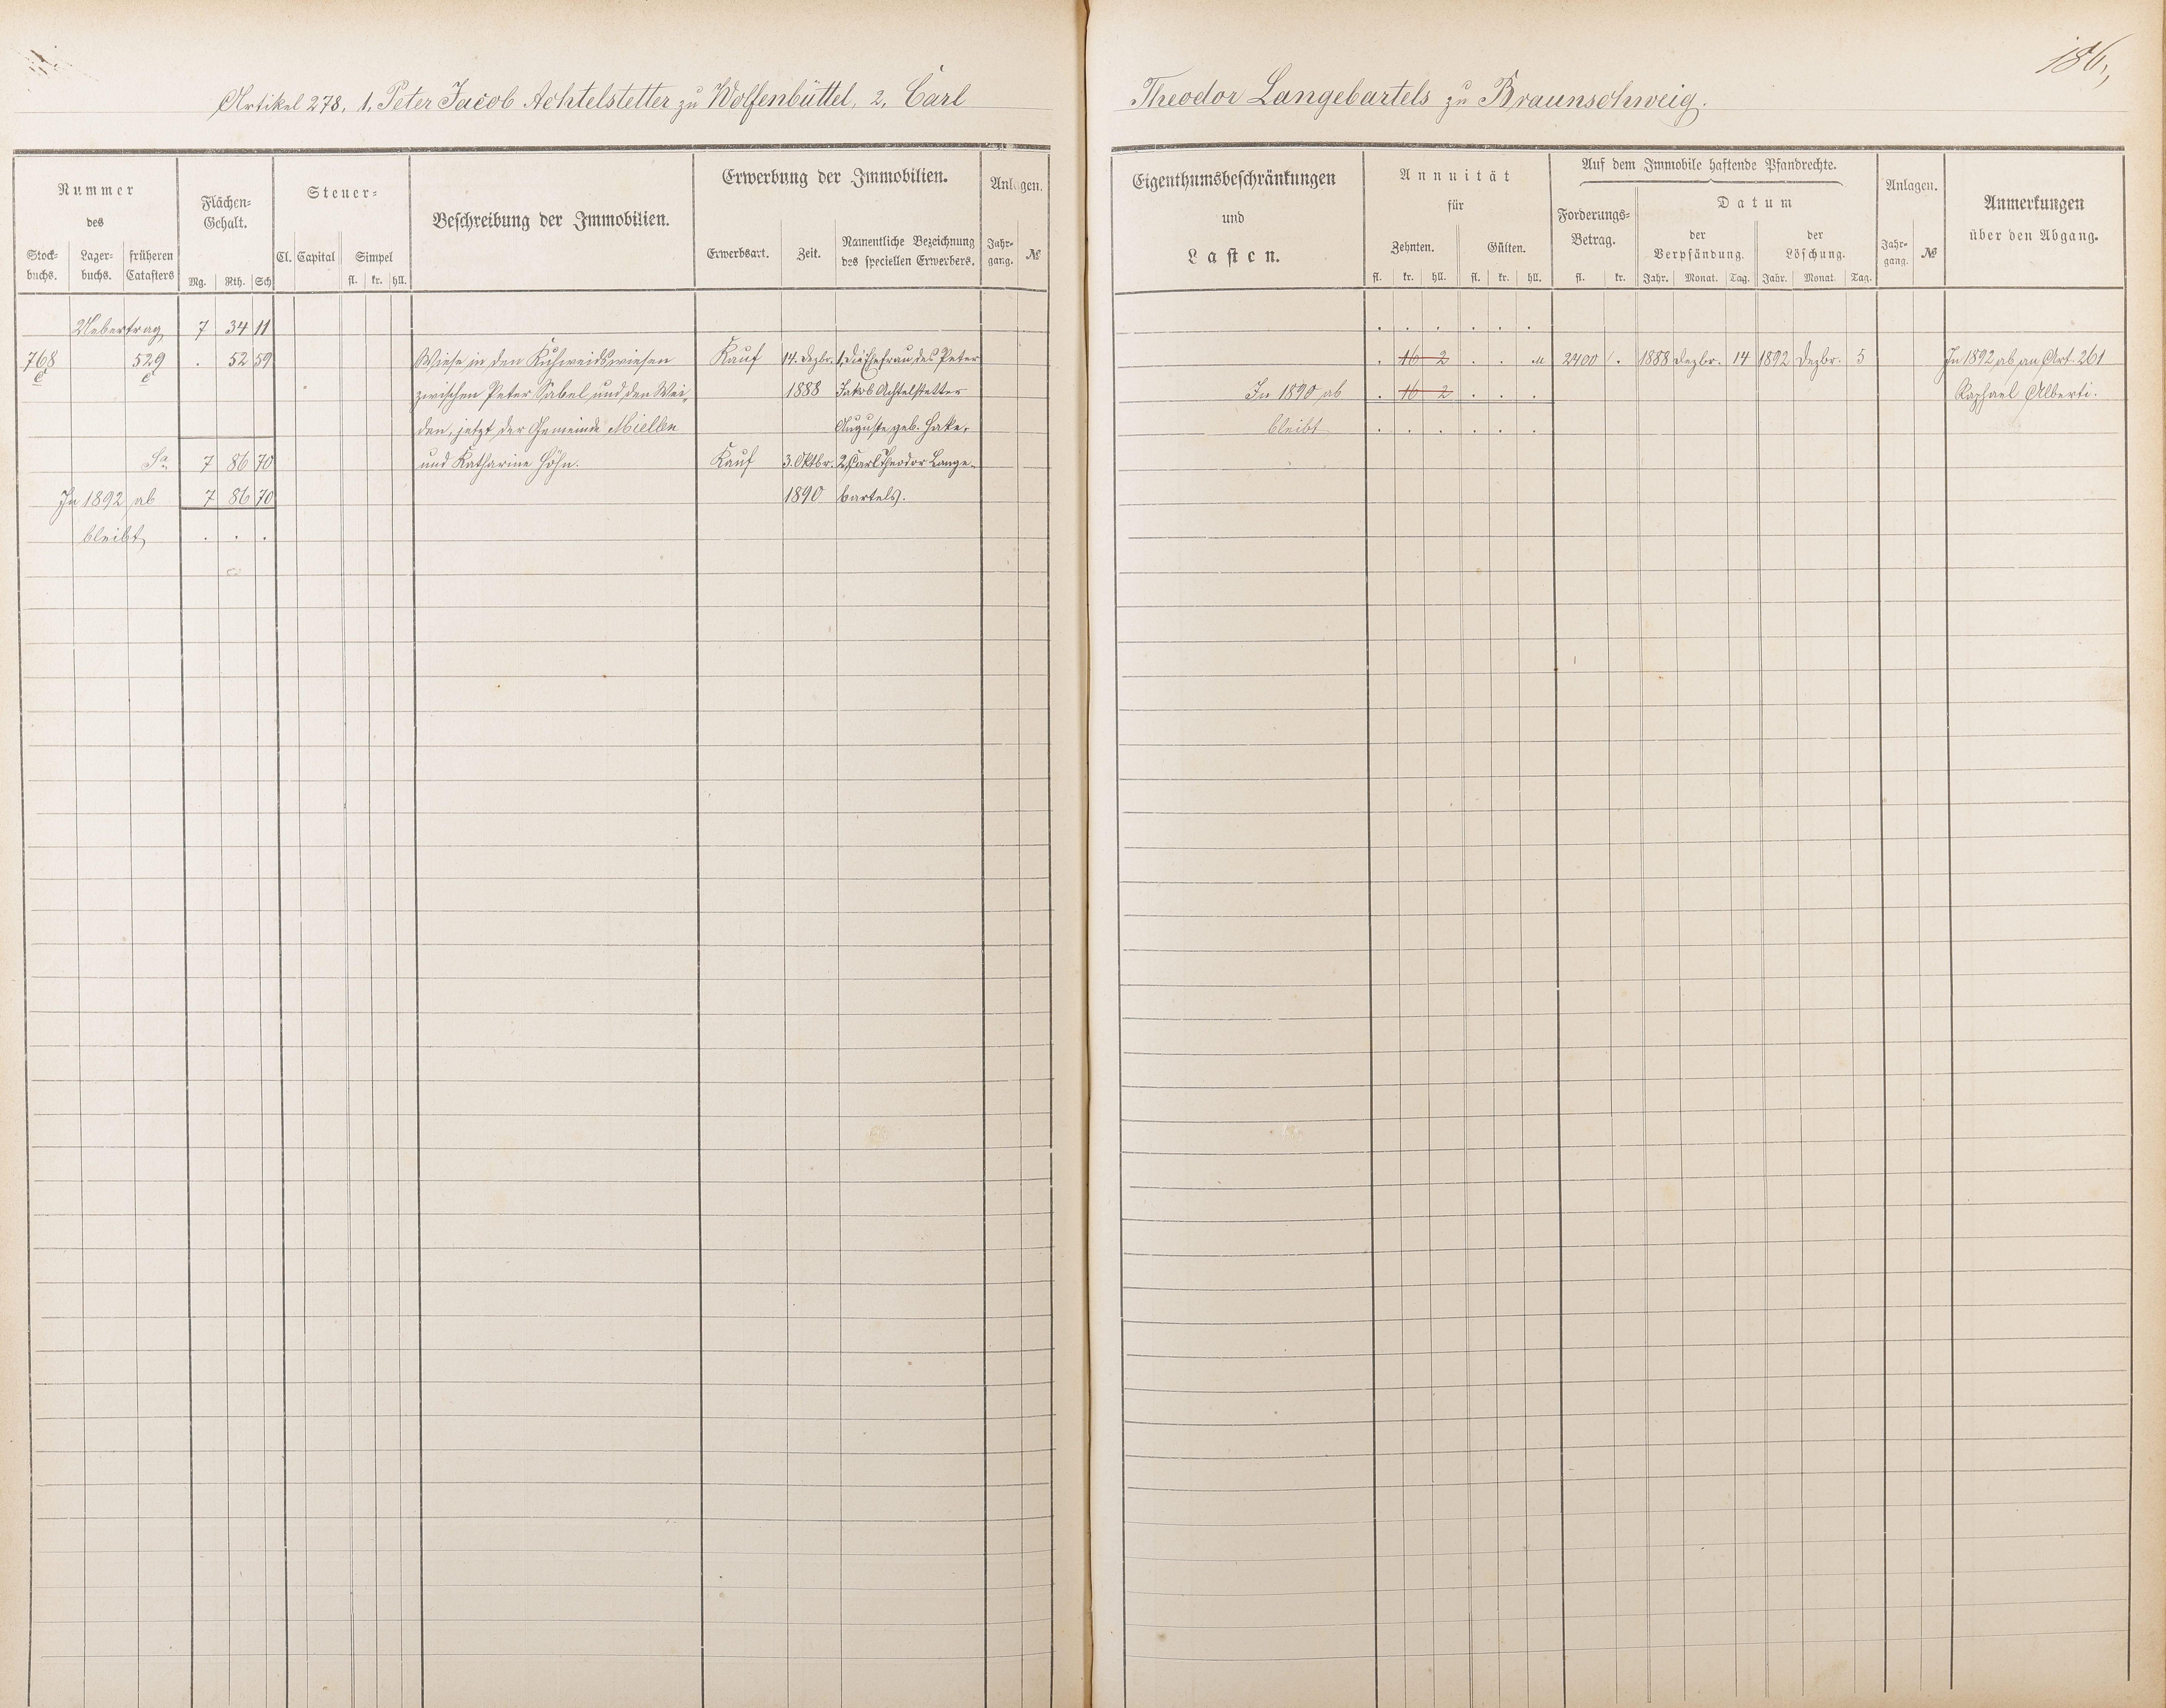 186,
Artikel 278, 1, Peter Jacob Achtelstetter zu Wolfenbüttel, 2, Carl Theodor Langebartels zu Braunschweig.
Nummer
des
Stock-buchs. Lager-buchs. früheren Catasters
Flächen-Gehalt.
Mg. Rth. Sch
Steuer-
Cl. Capital Simpel
fl. kr. hll.
Beschreibung der Immobilien.
Erwerbung der Immobilien.
Erwerbsart. Zeit. Namentliche Bezeichnung des speciellen Erwerbers.
Anlagen.
Jahr-gang. №
Eigenthumsbeschränkungen
und
Lasten.
Annuität
für
Zehnten. Gülten.
fl. kr. hll. fl. kr. hll.
Auf dem Immobile haftende Pfandrechte.
Forderungs-Betrag.
fl. kr.
Datum
der Verpfändung. der Löschung.
Jahr. Monat. Tag. Jahr. Monat. Tag.
Anlagen.
Jahr-gang. №
Anmerkungen
über den Abgang.
Uebertrag 7 34 11
768 529 . 52 59 Wiese in den Kuhweidswiesen Kauf 14. Dezbr. 1, die Ehefrau des Peter . 16 2 . . M 2400 . 1888 Dezbr. 14 1892 Dezbr. 5 In 1892 ab an Art. 261
c c zwischen Peter Sabel und den Wei- 1888 Jakob Achtelstetter In 1890 ab . 16 2 . . . Raphael Alberti.
den, jetzt der Gemeinde Miellen Auguste geb. Hake, bleibt . . . . . .
Sa 7 86 70 und Katharine Höhn. Kauf 3. Oktbr. 2, Carl Theodor Lange-
In 1892 ab 7 86 70 1890 bartels.
bleibt . . .